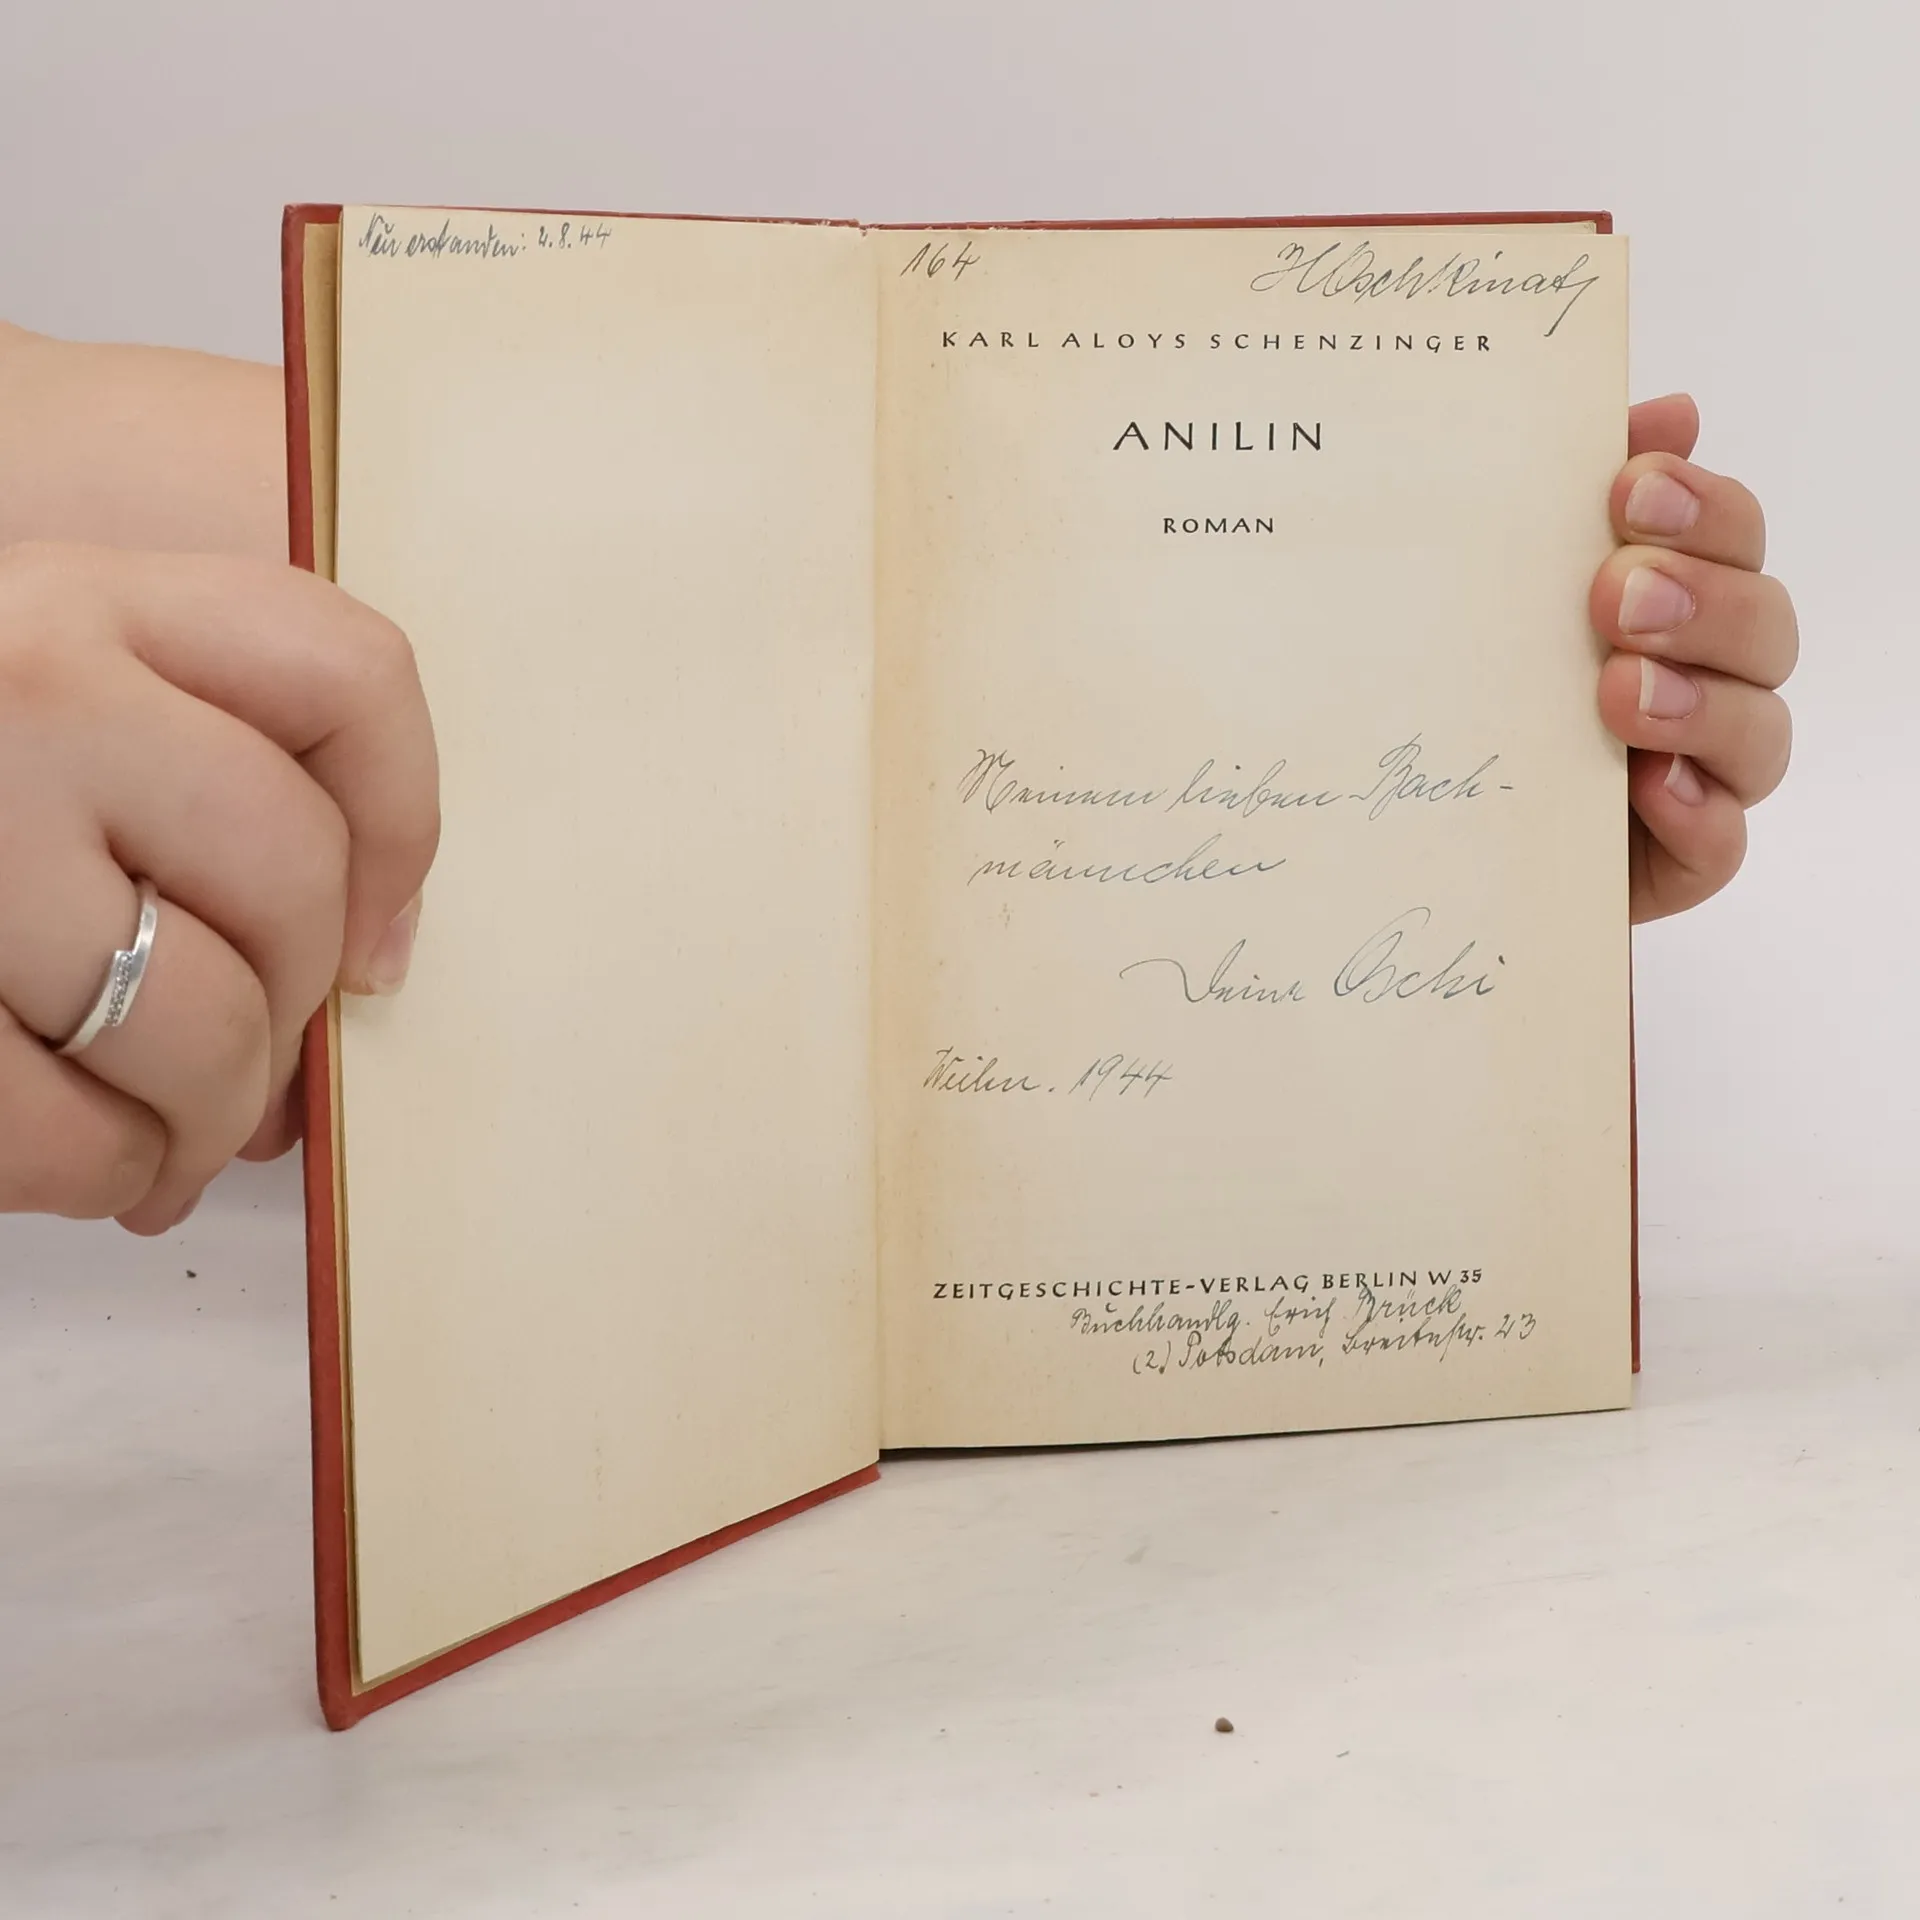 Neu erstanden: 2.8.44
164
HOschkinat
KARL ALOYS SCHENZINGER
ANILIN
ROMAN
Meinem lieben Bach-
männchen
Deine Oschi
Weihn. 1944
ZEITGESCHICHTE-VERLAG BERLIN W 35
Buchhandlg. Erich Brück
(2) Potsdam, Breitestr. 23